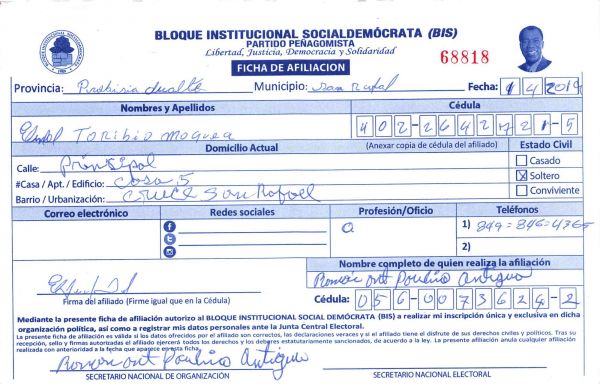 BLOQUE INSTITUCIONAL SOCIALDEMÓCRATA (BIS)
PARTIDO PEÑAGOMISTA
Libertad, Justicia, Democracia y Solidaridad
68818
FICHA DE AFILIACION
Provincia: Municipio: San Rafael Fecha: 1 4 2019
Nombres y Apellidos Cédula
Toribio 402-2642721-5
Domicilio Actual (Anexar copia de cédula del afiliado) Estado Civil
Calle: Prinsipal Casado
#Casa / Apt. / Edificio: Casa 5 Soltero
Barrio / Urbanización: Cruce San Rafael Conviviente
Correo electrónico Redes sociales Profesión/Oficio Teléfonos
1) 849-846-4365
2)
Nombre completo de quien realiza la afiliación
Paulino Antigua
Firma del afiliado (Firme igual que en la Cédula) Cédula: 056-0073624-2
Mediante la presente ficha de afiliación autorizo al BLOQUE INSTITUCIONAL SOCIAL DEMÓCRATA (BIS) a realizar mi inscripción única y exclusiva en dicha
organización política, así como a registrar mis datos personales ante la Junta Central Electoral.
La presente ficha de afiliación es válida si los datos ofrecidos por el afiliado son correctos, las declaraciones veraces y si el afiliado tiene el disfrute de sus derechos civiles y políticos. Tras su
recepción, sello y firmas autorizadas el afiliado ejercerá todos los derechos y los deberes estatutariamente sancionados, de acuerdo a la ley. La presente afiliación anula cualquier afiliación
realizada con anterioridad a la fecha que aparece en esta ficha.
Paulino Antigua
SECRETARIO NACIONAL DE ORGANIZACIÓN SECRETARIO NACIONAL ELECTORAL